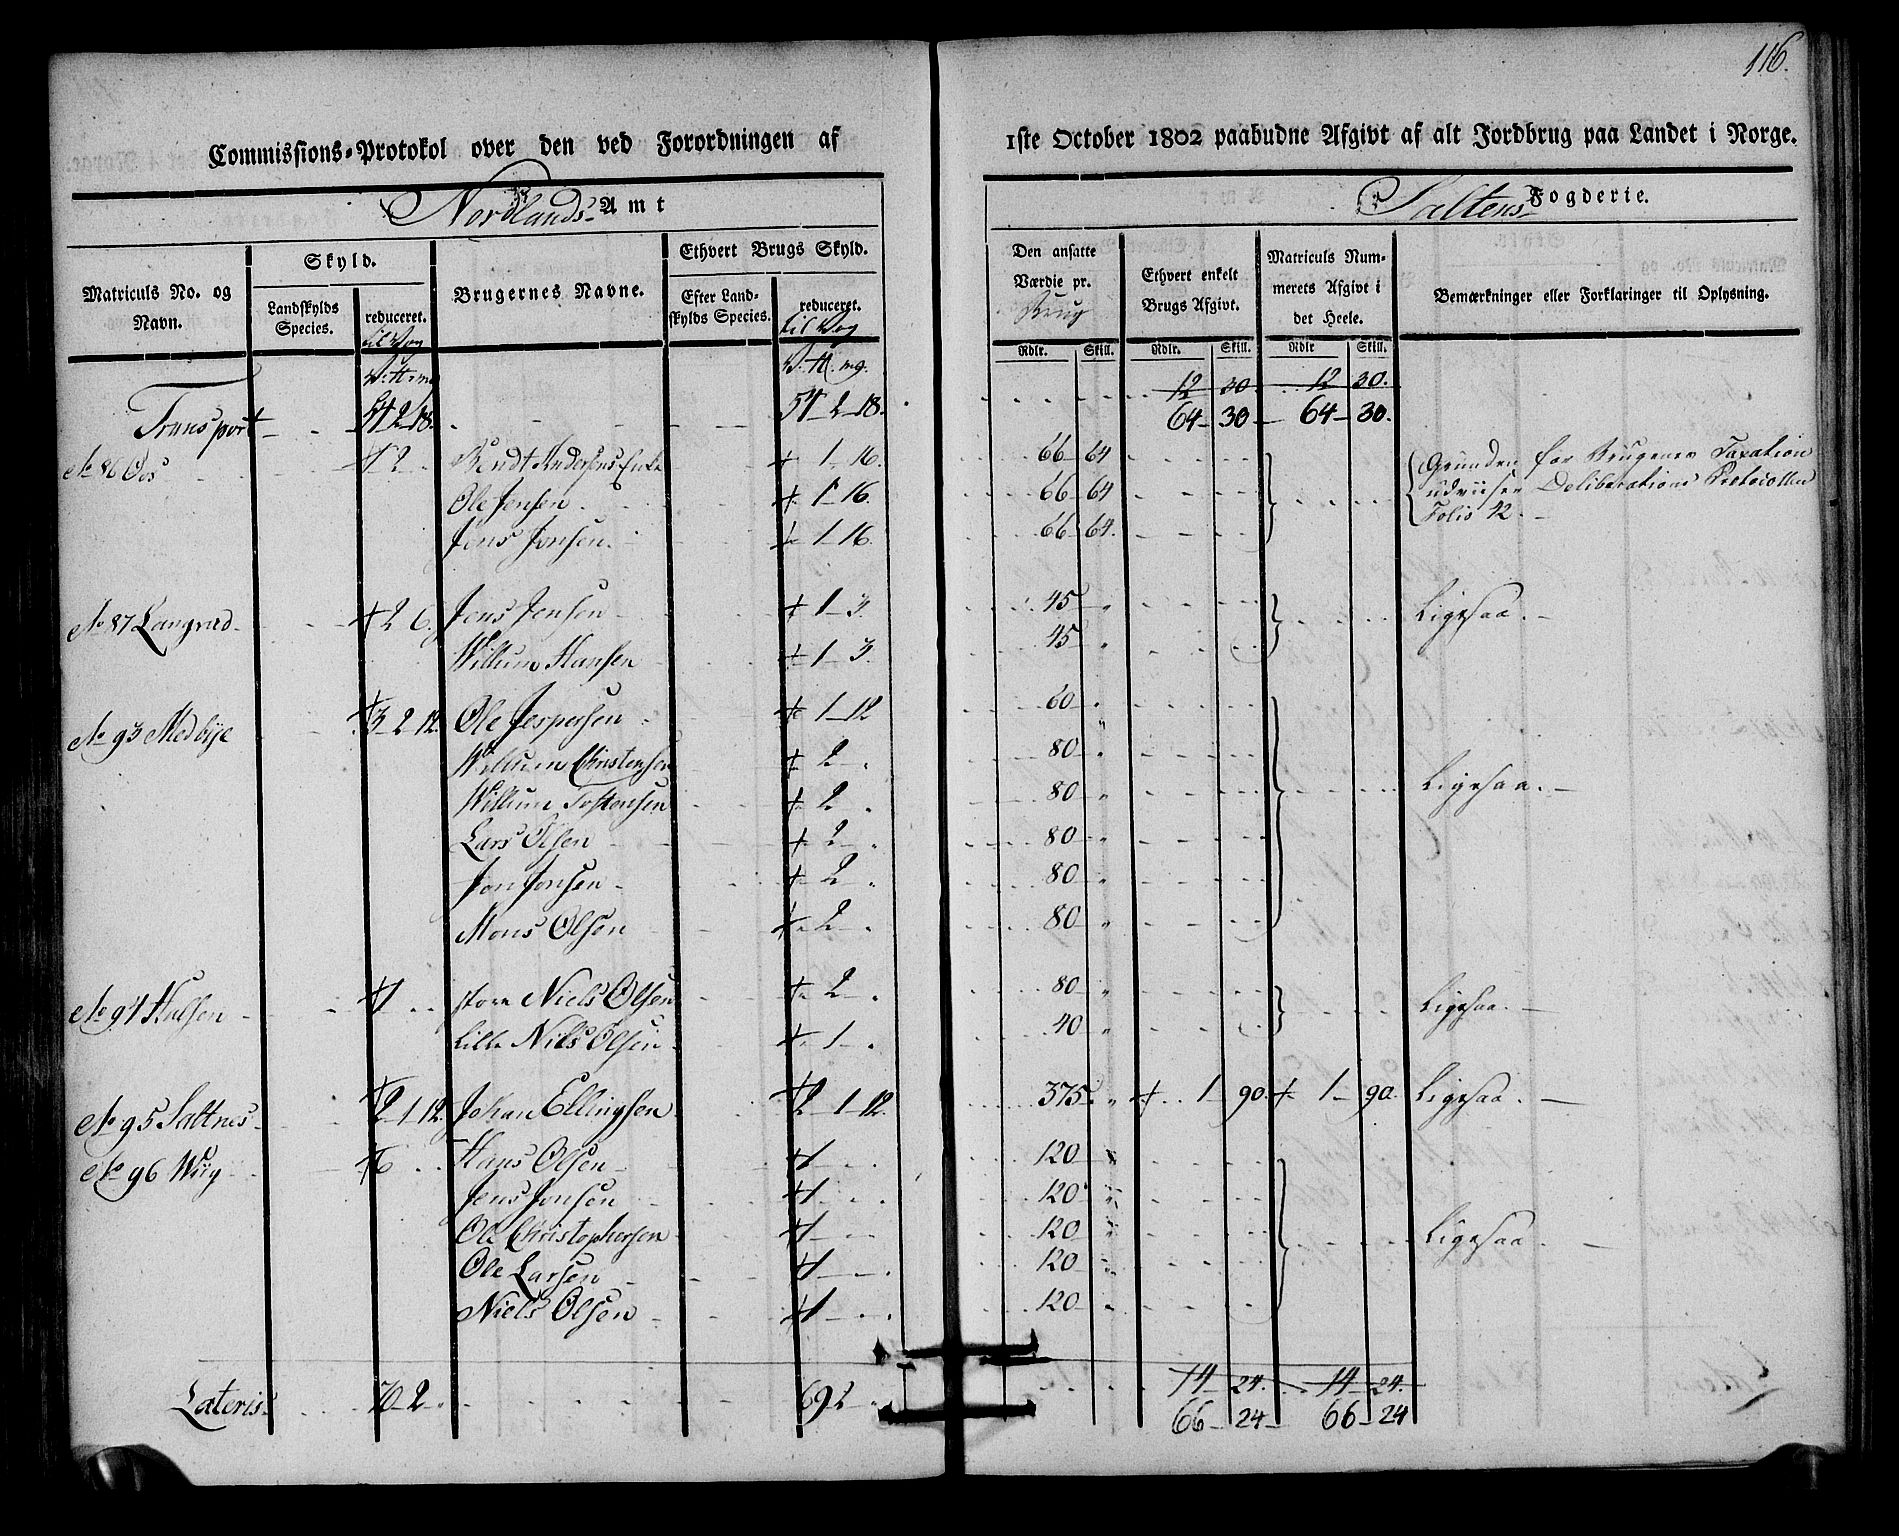 116.
Commissions-Protokol over den ved Forordningen af 1ste October 1802 paabudne Afgivt af alt Jordbrug paa Landet i Norge.
Nordlands Amt
Saltens Fogderie.
Matriculs No. og Navn.
Skyld.
Landskylds Species.
reduceret. til Vog
Brugernes Navne.
Ethvert Brugs Skyld.
Efter Landskylds Species.
reduceret. til Vog
Den ansatte Værdie pr. Brug
Ethvert enkelt Brugs Afgivt.
Matriculs Nummerets Afgivt i det Heele.
Bemærkninger eller Forklaringer til Oplysning.
Rdlr. Skill. Rdlr. Skill. Rdlr Skill.
V. ℔ mg V. ℔. mg.
12 30 12 30.
Transport 54 2 18. 54 2 18. 64 30 64 30.
No 86 Oos 4 2 Bendt Andersens Enke 1 16. 66 64 Grunden for Brugenes Taxation
Ole Jensen 1 16. 66 64 udviiser Deliberations Protocollen
Jens Jonsen 1 16. 66 64. Folio 12.
No 87 Langvad 2 6. Jens Jensen 1 3. 45 Ligesaa.
Willum Hansen 1 3. 45
No 93 Medbye 3 2 12. Ole Jespersen 1 12 60
Willum Christensen 2 80
Willum Tostensen 2 80 Ligesaa.
Lars Olsen 2 80
Jon Jonsen 2 80
Mons Olsen 2 80
No 94 Halsen 1 store Niels Olsen 2 80 Ligesaa.
lille Niels Olsen 1 40
No 95 Saltnes 2 1 12. Johan Ellingsen 2 1 12. 375 1 90. 1 90. Ligesaa.
No 96 Wiig 6 Hans Olsen 1 120
Jens Jonsen 1 120
Ole Christophersen 1 120 Ligesaa.
Ole Larsen 1 120
Niels Olsen 1 120
14 24. 14 24.
Lateris 70 2 69 2 66 24 66 24